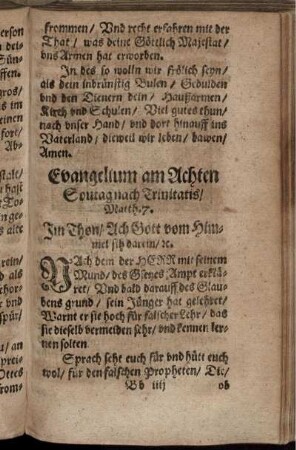 frommen/ Vnd recht erfahren mit der
That/ was deine Göttlich Majestat/
vns Armen hat erworben.
In des so wolln wir frölich seyn/
als dein inbrünstig Bulen/ Gedulden
vnd den Dienern dein/ Haußarmen/
Kirch vnd Schulen/ Viel gutes thun/
nach vnser Hand/ vnd dort hinauff ins
Vaterland/ dieweil wir leben/ dawen/
Amen.
Evangelium am Achten
Sontag nach Trinitatis/
Matth. 7.
Im Thon/ Ach Gott vom Him-
mel sih darein/ ꝛc.
NAch dem der HERR mit seinem
Mund/ des Gsetzes Ampt erklä-
ret/ Vnd bald darauff des Glau-
bens grund/ sein Jünger hat gelehret/
Warnt er sie hoch für falscher Lehr/ das
sie dieselb vermeiden sehr/ vnd kennen ler-
nen solten
Sprach seht euch für vnd hütt euch
wol/ für den falschen Propheten/ Die/
Bb iiij
ob